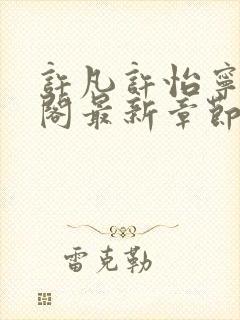 許凡許怡寧
閣最新章節
雷克勒